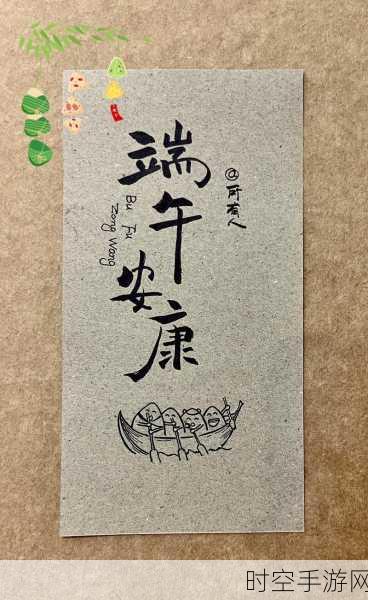 @所有人
端午安康
Bu Fu
Zong Wang
时空手游网